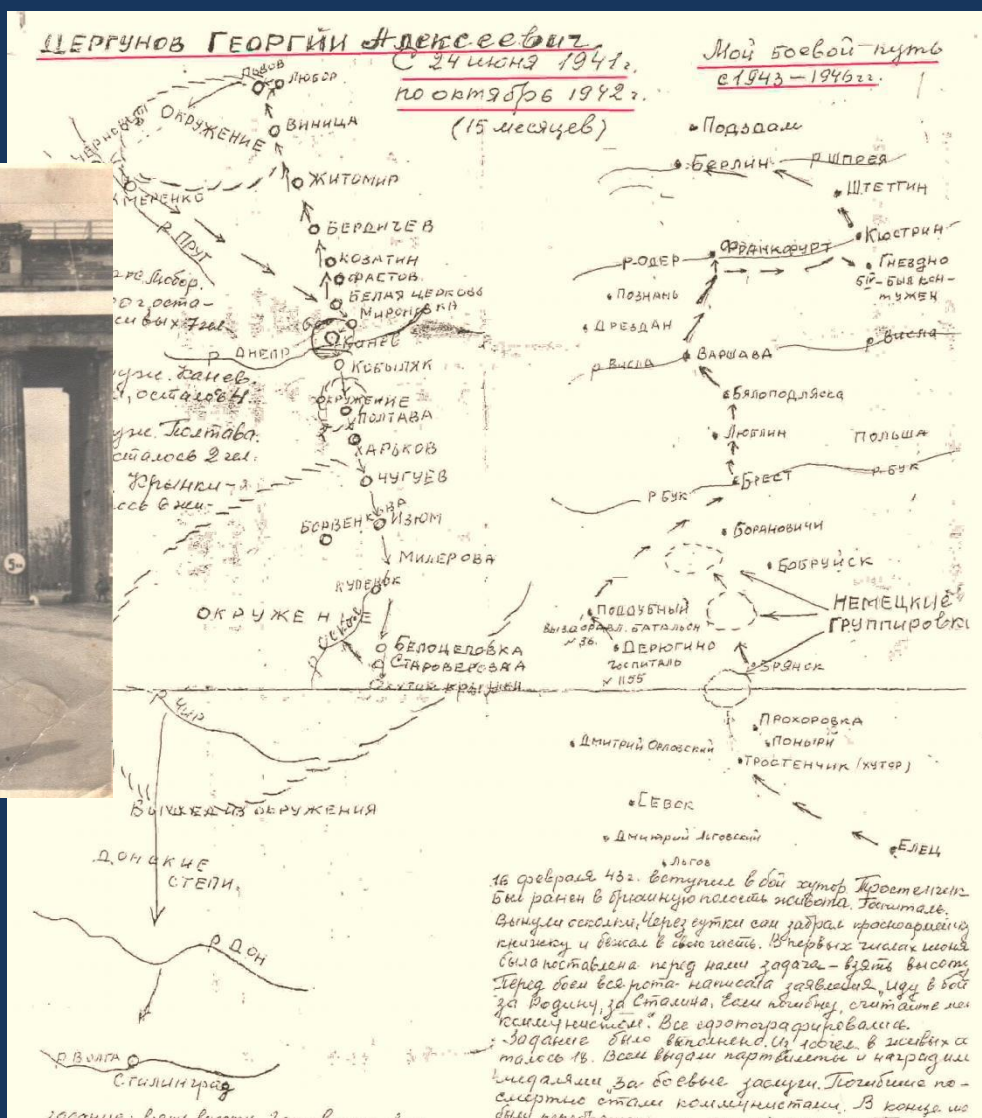 ЦЕРГУНОВ ГЕОРГИЙ АЛЕКСЕЕВИЧ
С 24 июня 1941г.
по октябрь 1942г.
(15 месяцев)
ЛЬВОВ
ЛЮБОР
ОКРУЖЕНИЕ
ВИНИЦА
ЖИТОМИР
р. ПРУТ
БЕРДИЧЕВ
КОЗАТИН
ФАСТОВ
БЕЛАЯ ЦЕРКОВЬ
МИРОНОВКА
КАНЕВ
р. ДНЕПР
КОБЫЛЯК
ОКРУЖЕНИЕ
ПОЛТАВА
ХАРЬКОВ
ЧУГУЕВ
ИЗЮМ
МИЛЕРОВА
ОКРУЖЕНИЕ
р. ОСКОЛ
БЕЛОЦЕПОВКА
СТАРОВЕРОВКА
Любор.
Канев.
Полтава.
сталось 2 чел.
Крынки
5
р. ЧИР
ВЫШЕЛ ИЗ ОКРУЖЕНИЯ
ДОНСКИЕ
СТЕПИ
р. ДОН
р. ВОЛГА
Сталинград
Мой боевой путь
с 1943–1946гг.
Подздам
БЕРЛИН
р. ШПРЕЯ
ШТЕТТИН
КЮСТРИН
ФРАНКФУРТ
р. ОДЕР
ГНЕЗДНО
5/IV – БЫЛ КОН-
ТУЖЕН
ПОЗНАНЬ
ДРЕЗДАН
р. ВИСЛА
ВАРШАВА
р. ВИСЛА
БЯЛОПОДЛЯСКА
ЛЮБЛИН
ПОЛЬША
р. БУК
БРЕСТ
р. БУК
БОРАНОВИЧИ
БОБРУЙСК
НЕМЕЦКИЕ
ГРУППИРОВКИ
ПОДДУБНЫЙ
ВЫЗДОРАВЛ. БАТАЛЬОН
№ 36.
ДЕРЮГИНО
ГОСПИТАЛЬ
№ 1155
БРЯНСК
ПРОХОРОВКА
ПОНЫРИ
ДМИТРИЙ ОРЛОВСКИЙ
ТРОСТЕНЧИК (ХУТОР)
СЕВСК
ДМИТРИЙ ЛЬГОВСКИЙ
ЛЬГОВ
ЕЛЕЦ
16 февраля 43г. вступил в бой хутор Тростенчик
Был ранен в брюшную полость живота. Госпиталь.
Вынули осколки, Через сутки сам забрал красноармейск
книжку и бежал в свою часть. В первых числах июня
была поставлена перед нами задача – взять высоту
Перед боем вся рота написала заявления „иду в бой
за Родину, за Сталина, Если погибну, считайте ме
коммунистом". Все сфотографировались.
Задание было выполнено. Из в живых ос
талось 18. Всем выдали партбилеты и наградили
медалями „За боевые заслуги. Погибшие по-
смертно стали коммунистами. В конце